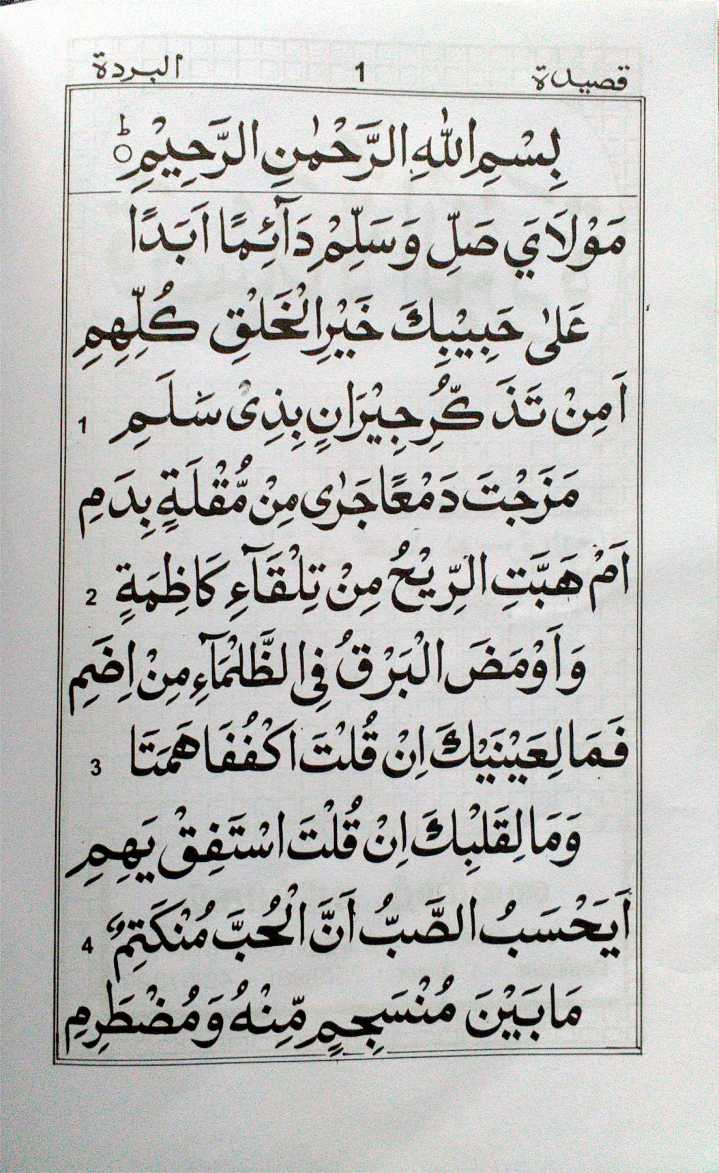 قصيدة 1 البردة
بِسْمِ اللهِ الرَّحْمٰنِ الرَّحِيْمِ ؕ
مَوْلَايَ صَلِّ وَسَلِّمْ دَآئِمًا اَبَدًا
عَلٰى حَبِيْبِكَ خَيْرِ الْخَلْقِ كُلِّهِمِ
اَمِنْ تَذَكُّرِ جِيْرَانٍ بِذِىْ سَلَمِ 1
مَزَجْتَ دَمْعًا جَرٰى مِنْ مُّقْلَةٍ بِدَمِ
اَمْ هَبَّتِ الرِّيْحُ مِنْ تِلْقَآءِ كَاظِمَةٍ 2
وَاَوْمَضَ الْبَرْقُ فِى الظَّلْمَآءِ مِنْ اِضَمِ
فَمَا لِعَيْنَيْكَ اِنْ قُلْتَ اكْفُفَا هَمَتَا 3
وَمَا لِقَلْبِكَ اِنْ قُلْتَ اسْتَفِقْ يَهِمِ
اَيَحْسَبُ الصَّبُّ اَنَّ الْحُبَّ مُنْكَتِمٌ 4
مَا بَيْنَ مُنْسَجِمٍ مِّنْهُ وَمُضْطَرِمِ